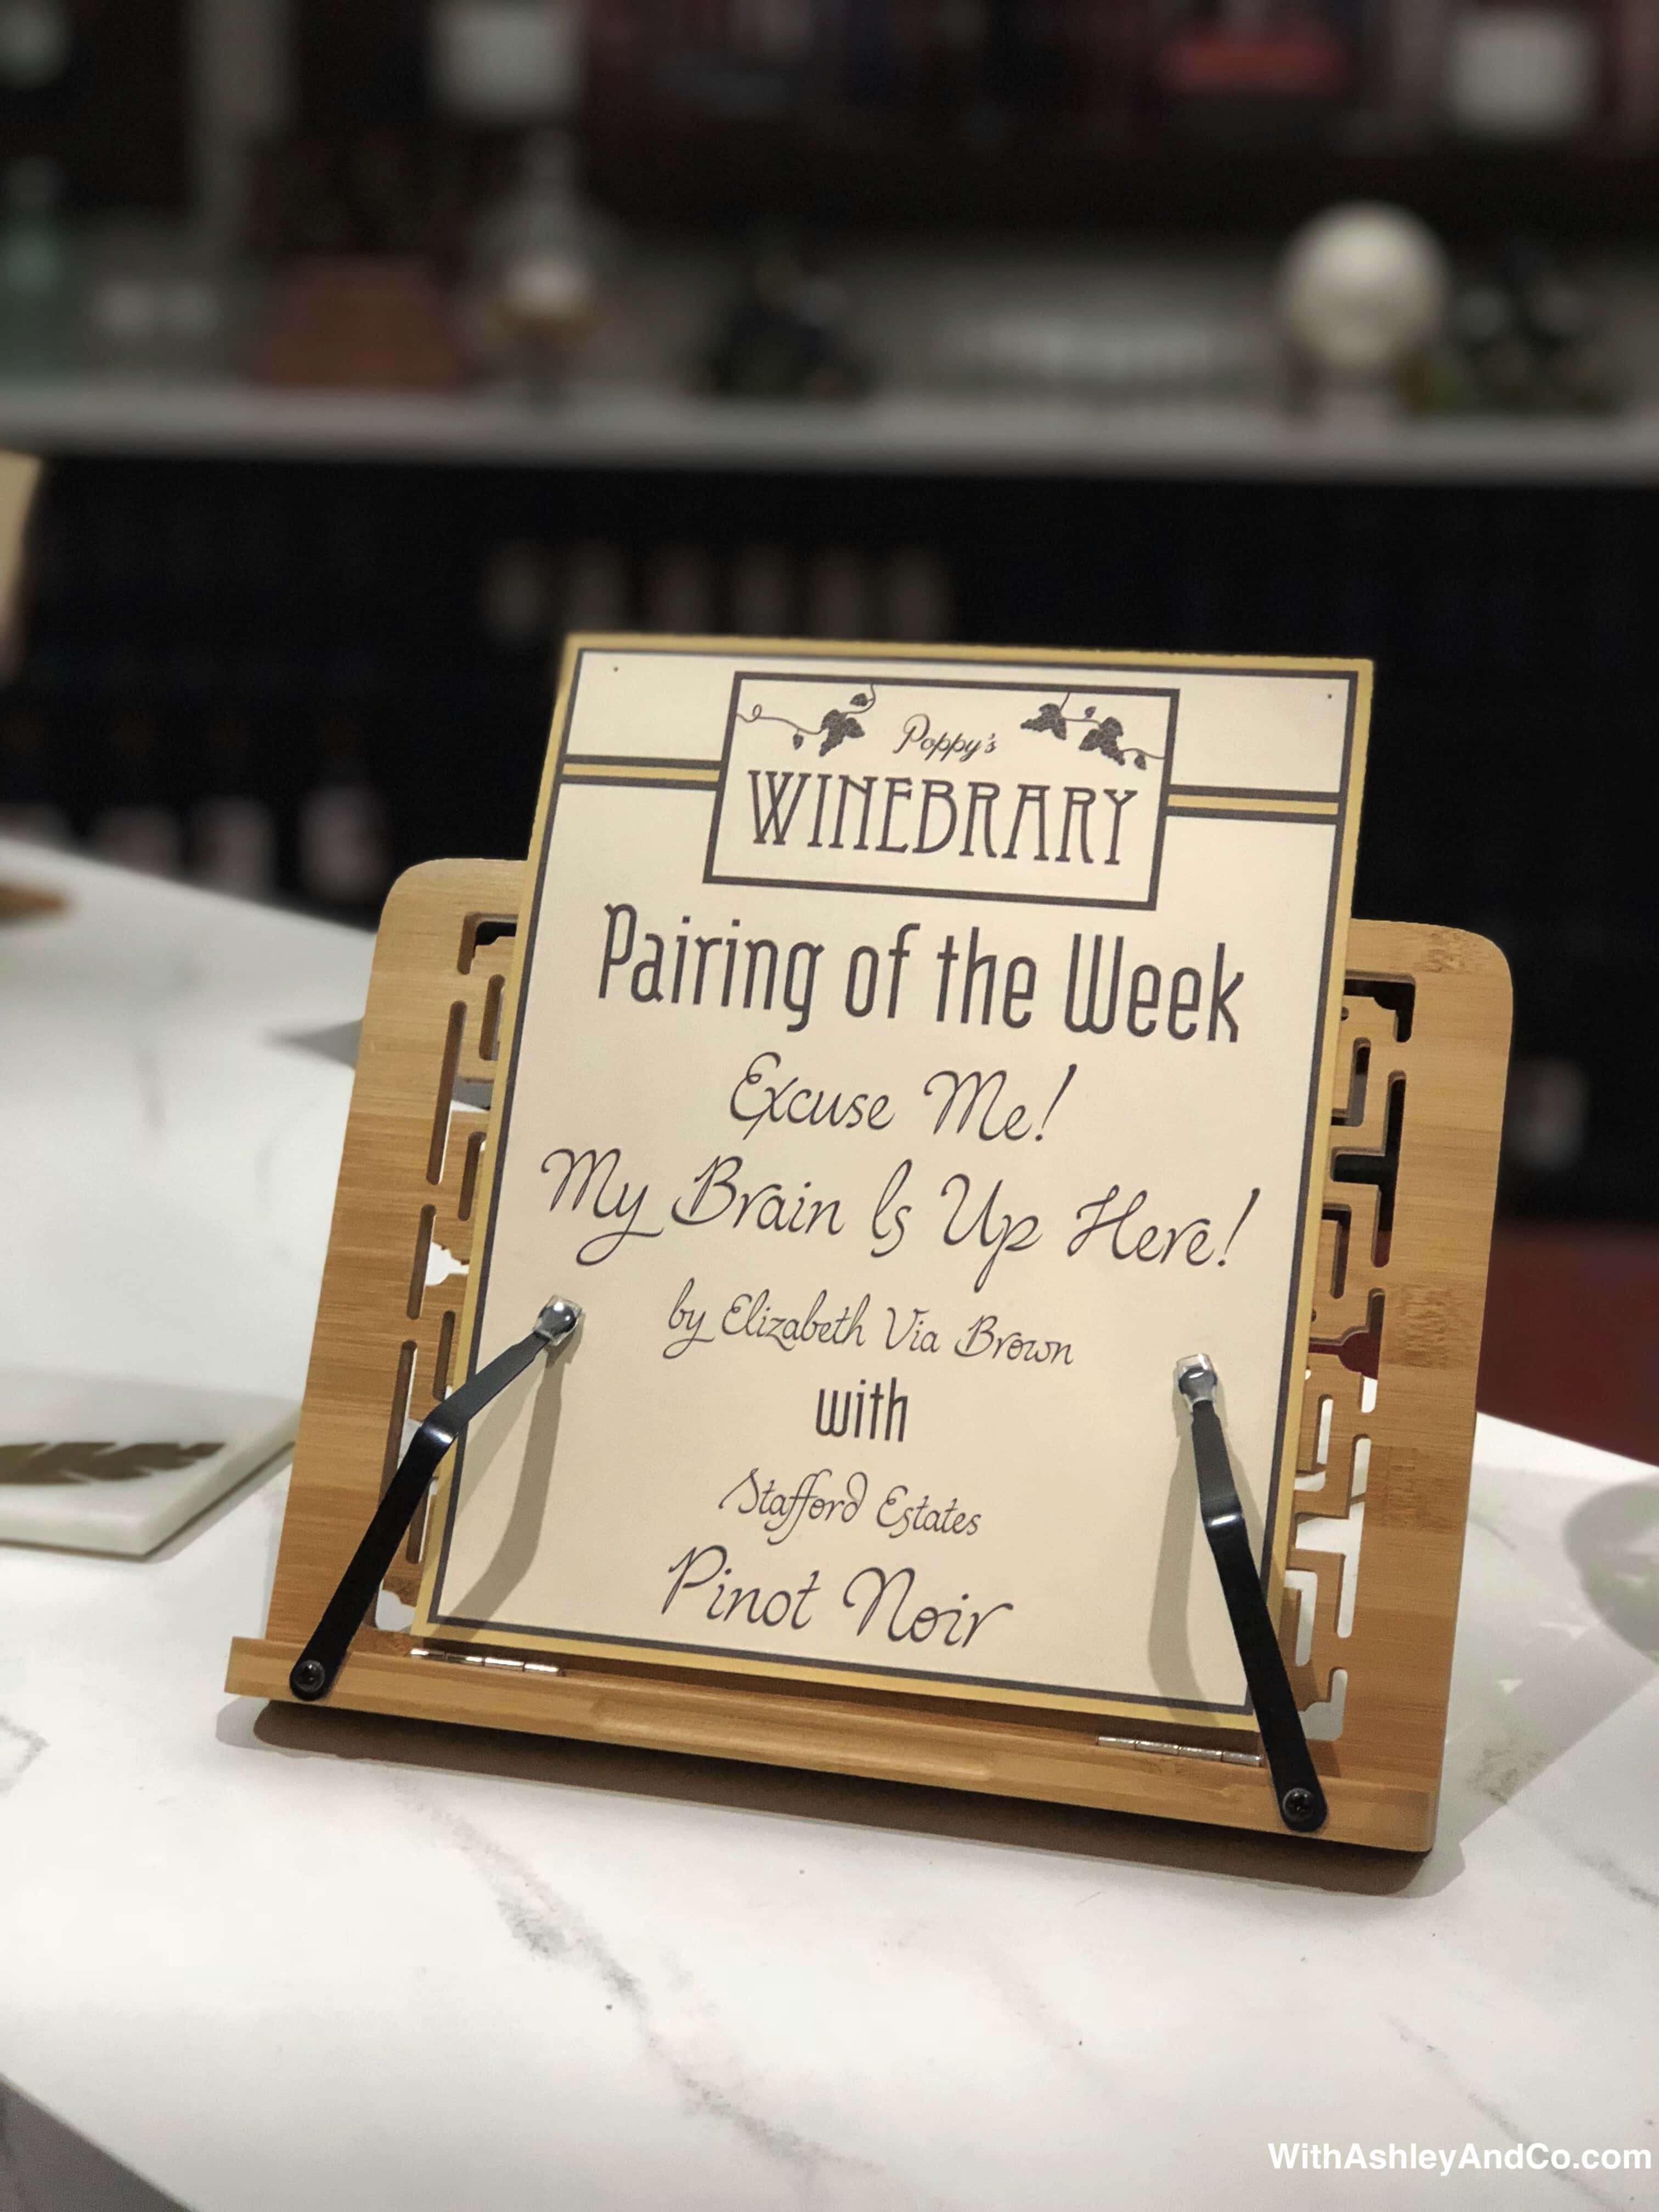 Poppy's
WINEBRARY
Pairing of the Week
Excuse Me!
My Brain Is Up Here!
by Elizabeth Via Brown
with
Stafford Estates
Pinot Noir
WithAshleyAndCo.com